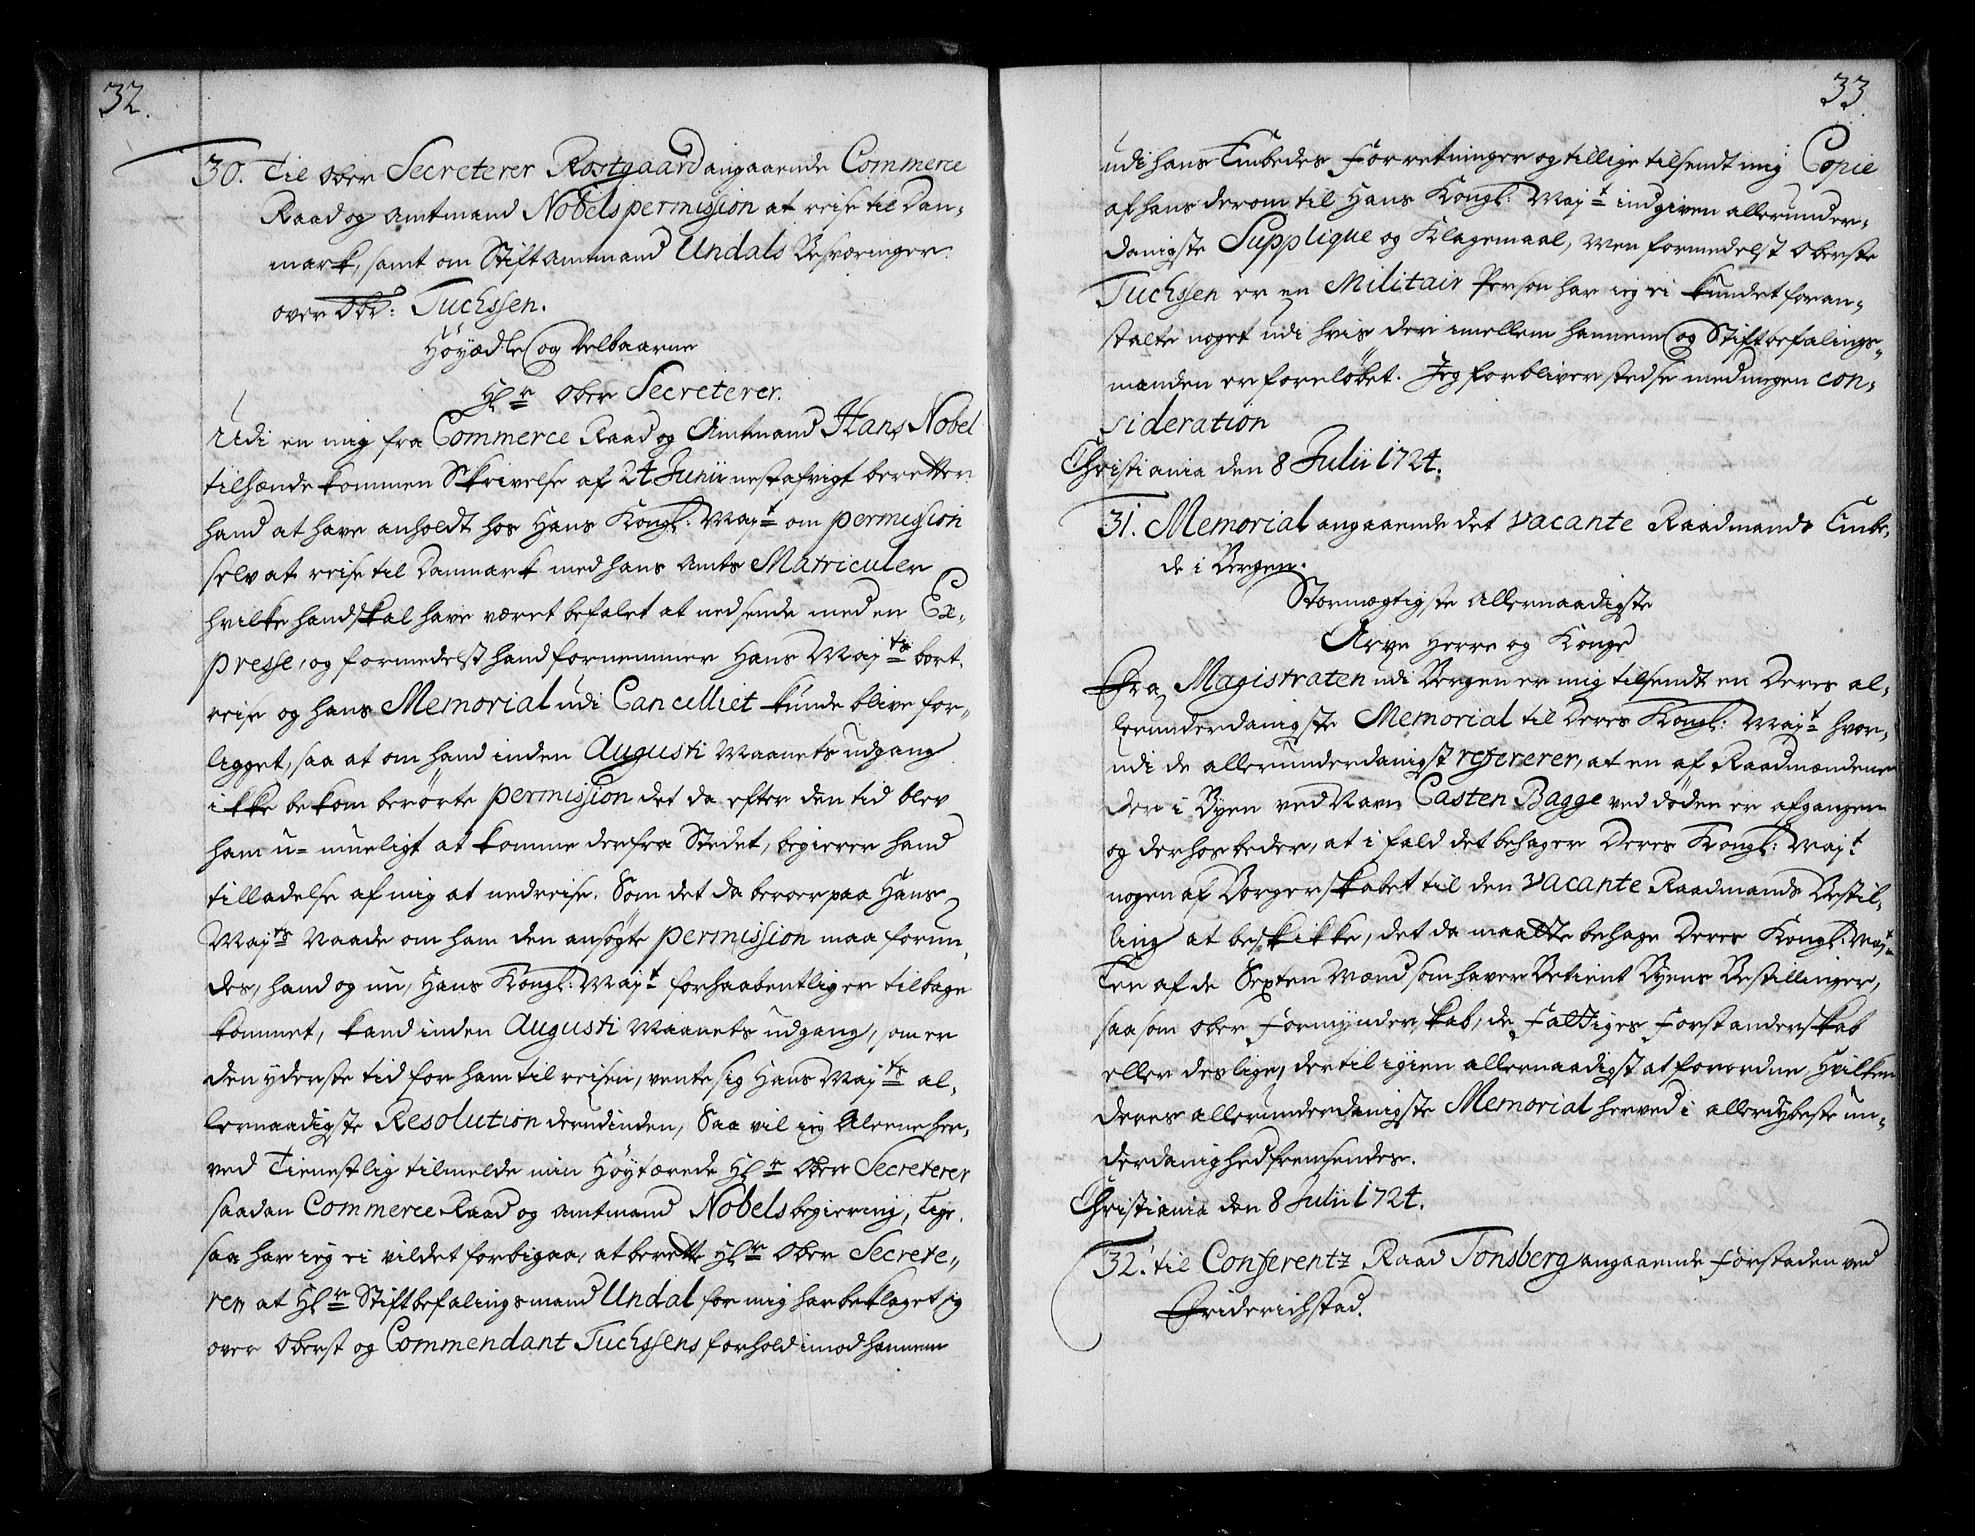 32.
30. Til Ober Secreterer Rostgaard angaaende Commerce
Raad og Amtmand Nobels permission at reise til Dan-
mark, samt om Stiftamtmand Undals Besværinger
over Obr: Tuchssen.
Høyædle og Velbaarne
Hr Ober Secreterer.
Udi en mig fra Commerce Raad og Amtmand Hans Nobel
tilhænde kommen Skrivelse af 24 Junii nestafvigt beretter
hand at have anholdt hos Hans Kongl: Mayt om permission
selv at reise til Danmark med hans Amts Matriculer
hvilke hand skal have været befalet at nedsende med en Ex-
presse, og formedelst hand fornemmer Hans Mayts bort-
reise og hans Memorial udi Cancelliet kunde blive for-
ligget, saa at om hand inden Augusti Maanets udgang
ikke bekom berørte permission det da efter den tid blev
ham u-mueligt at komme derfra Stedet, begierer hand
tilladelse af mig at nedreise. Som det da beroer paa Hans
Mayts Naade om ham den ansøgte permission maa forun-
des, hand og nu, Hans Kongl: Mayt forhaabentlig er tilbage
kommet, kand inden Augusti Maanets udgang, som er
den yderste tid for ham til reisen, vente sig Hans Mayts al-
lernaadigste Resolution derudinden, Saa vil ieg Aleene her-
ved Tienestlig tilmelde min Høytærede Hr Ober Secreterer
saadan Commerce Raad og Amtmand Nobels begiering, Lige-
saa har ieg ei vildet forbigaa, at berette Hr Ober Secrete-
rer at Hr Stiftbefalingsmand Undal for mig har beklaget sig
over Oberst og Commendant Tuchssens forhold imod hannem
33
udi hans Embedes Forretninger og tillige tilsendt mig Copie
af hans derom til Hans Kongl: Mayt indgiven allerunder-
danigste Supplique og Klagemaal, Men formedelst Oberste
Tuchssen er en Militair Person har ieg ei kundet foran-
stalte noget udi hvis der imellem hannem og Stiftbefalings-
manden er foreløbet. Jeg forbliver stedse med megen con-
sideration
Christiania den 8 Julii 1724.
31. Memorial angaaende det vacante Raadmands Embe-
de i Bergen.
Stormægtigste Allernaadigste
Arve Herre og Konge
Fra Magistraten udi Bergen er mig tilsendt en Deres al-
lerunderdanigste Memorial til Deres Kongl: Mayt hvor-
udi de allerunderdanigst refererer, at en af Raadmændene
der i Byen ved Navn Casten Bagge ved døden er afgangen
og derhos beder, at i fald det behager Deres Kongl: Mayt
nogen af Borgerskabet til den vacante Raadmands Bestil-
ling at beskikke, det da maatte behage Deres Kongl: Mayt
Een af de Sexten Mænd som haver Betient Byens Bestillinger,
saasom Ober Formynderskab, de Fattiges Forstanderskab
eller deslige, dertil igien allernaadigst at forordne, Hvilken
Deres allerunderdanigste Memorial herved i allerdybeste un-
derdanighed fremsendes.
Christiania den 8 Julii 1724.
32. til Conferentz Raad Tonsberg angaaende Forstaden ved
Friderichstad.